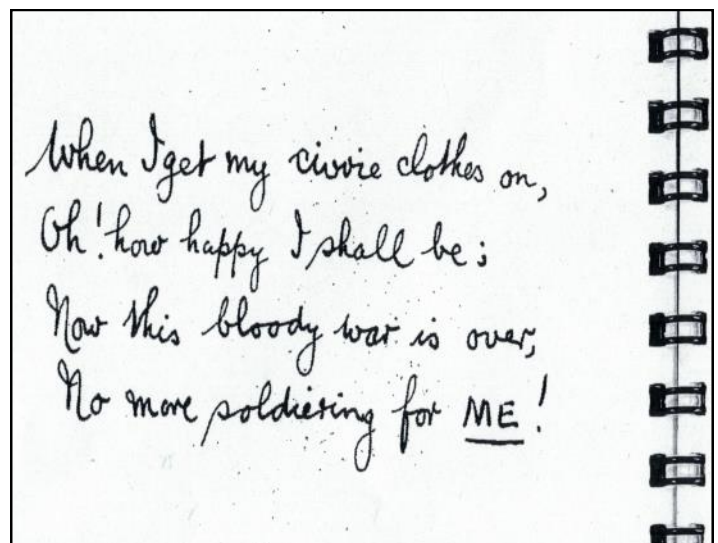 When I get my civvie clothes on,
Oh! how happy I shall be;
Now this bloody war is over,
No more soldiering for ME!